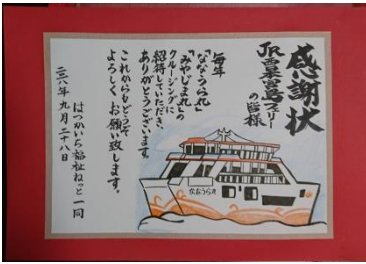 感謝状
JR西日本宮島フェリー
の皆様
毎年
「ななうら丸」
「みやじま丸」の
クルージングに
招待していただき、
ありがとうございます。
これからもどうぞ
よろしくお願い致します。
二〇一八年九月二十八日
はつかいち福祉ねっと一同
ななうら丸